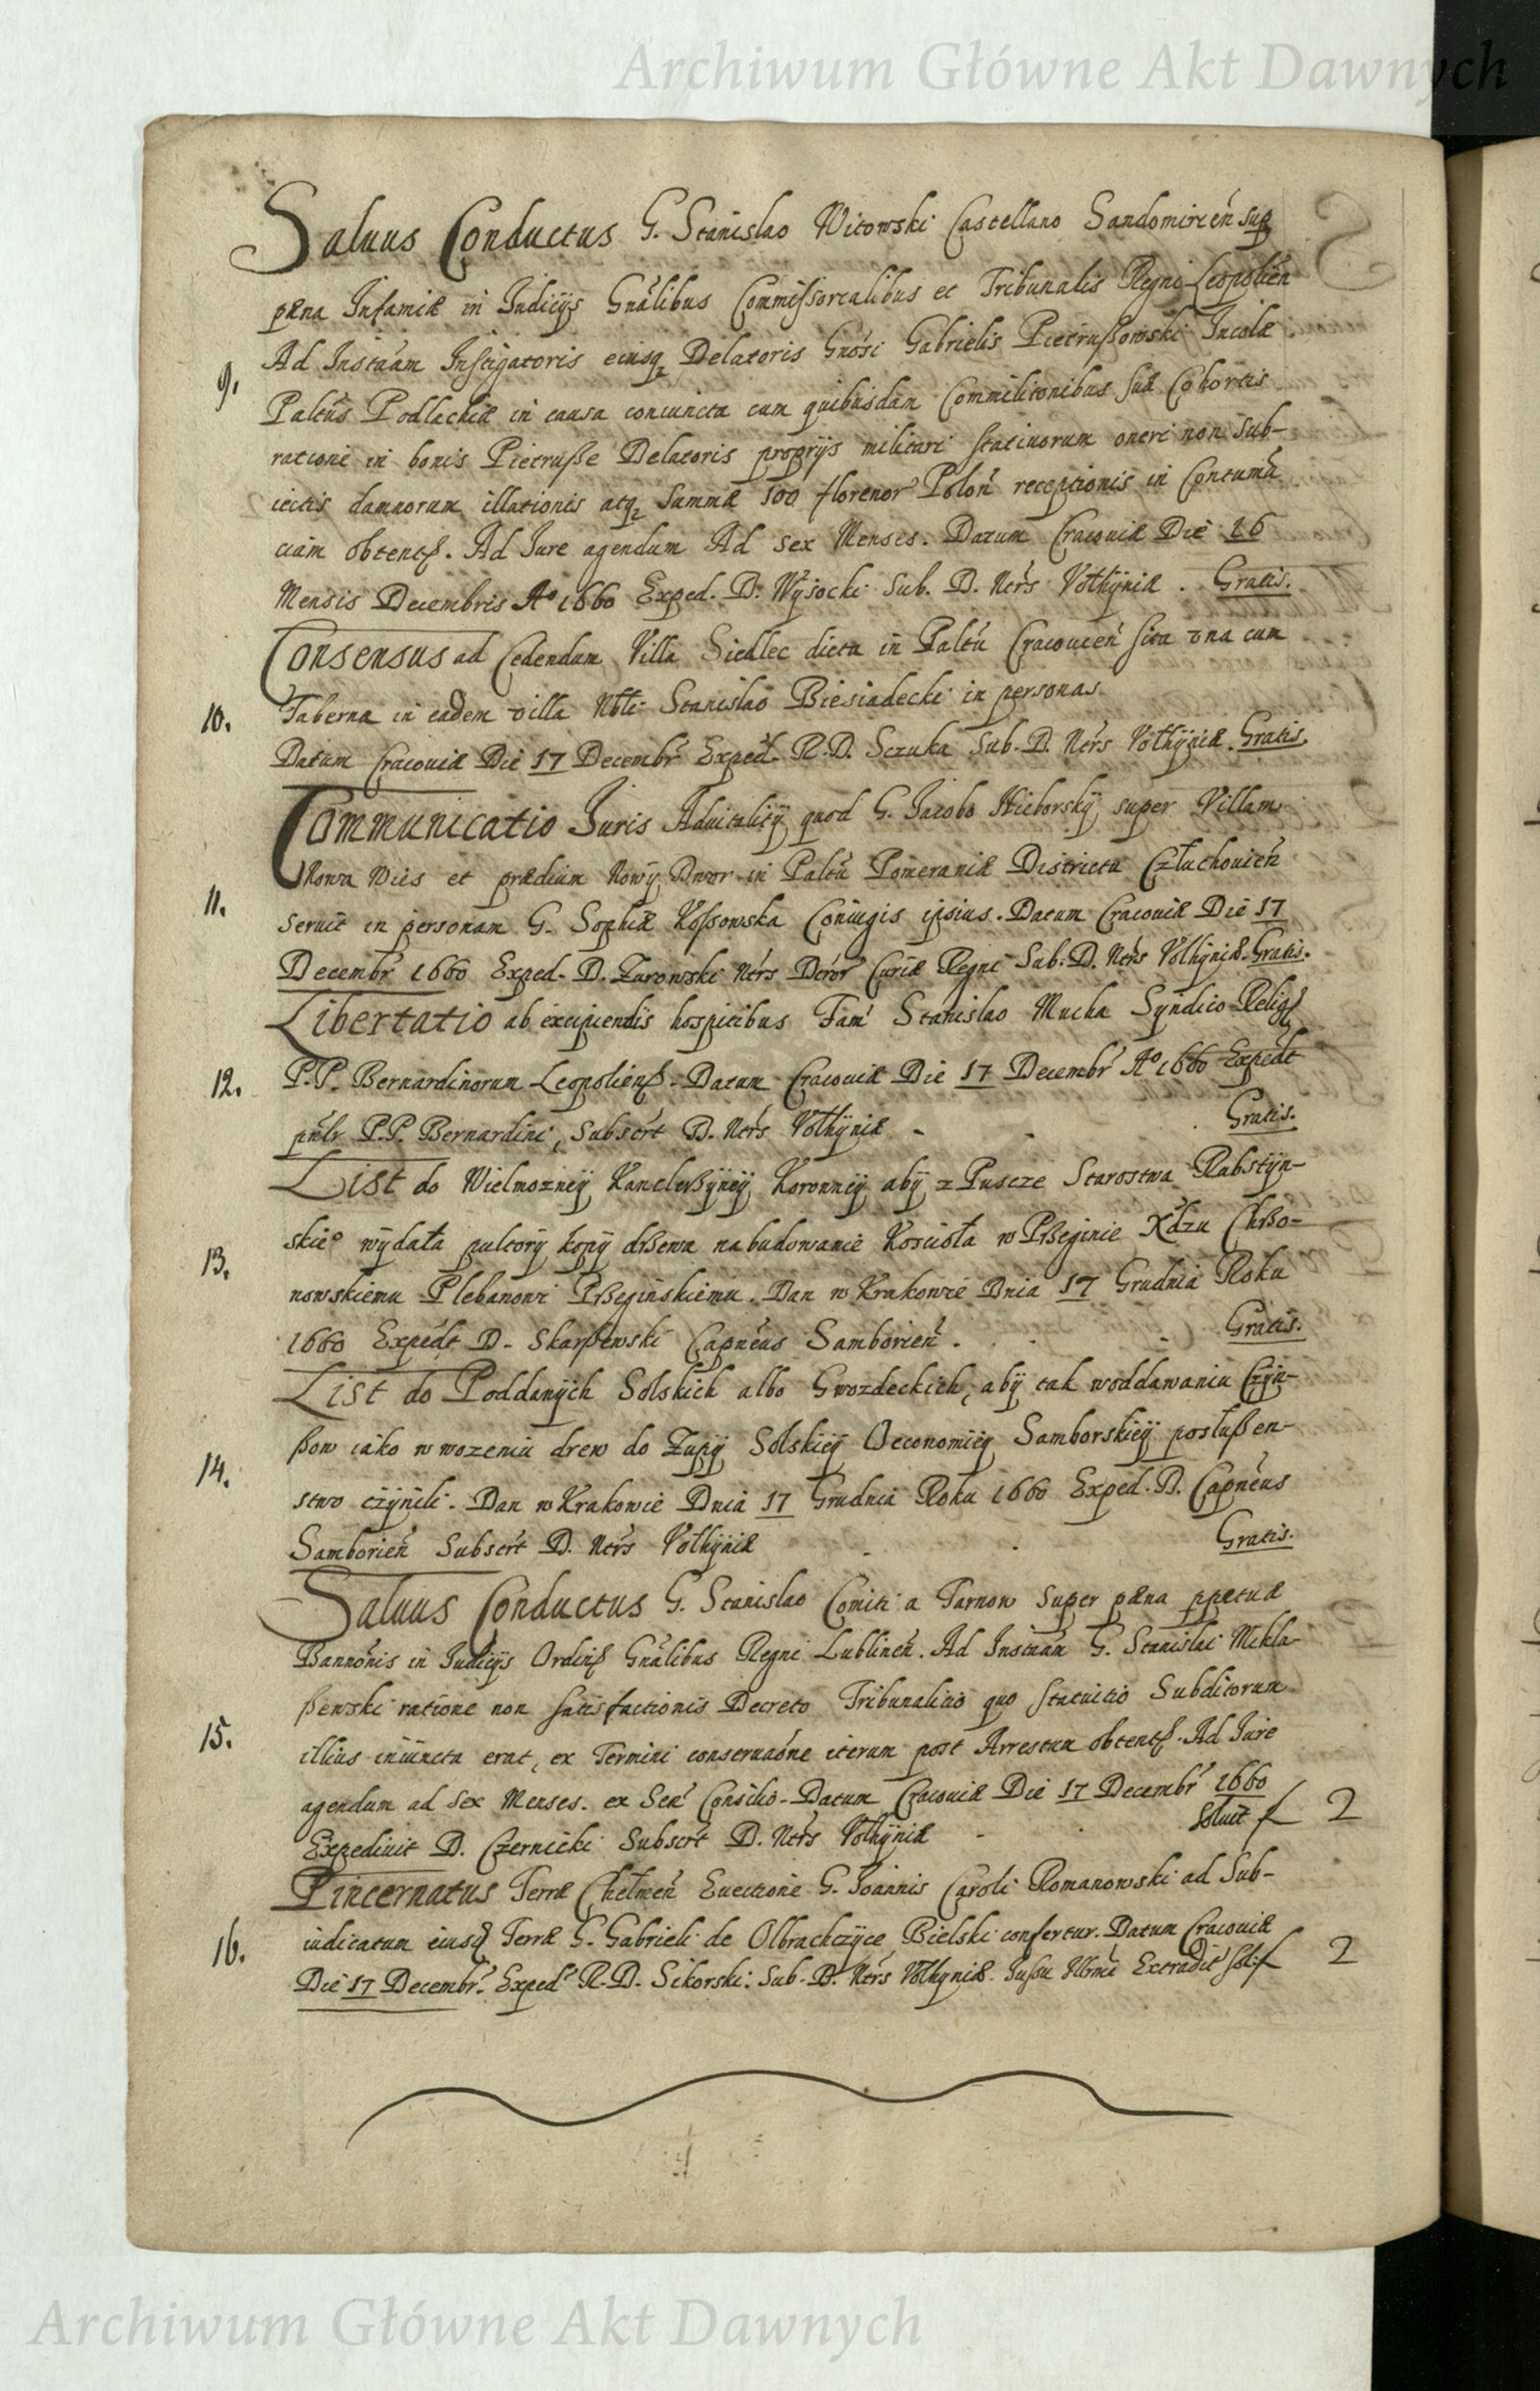 Archiwum Główne Akt Dawnych
Salvus Conductus G. Stanislao Witowski Castellano Sandomirien̄ sup
pæna Infamiæ in Iudicijs Gnālibus Commissorialibus et Tribunalis Regni Leopolien̄
9. Ad Instām Instigatoris eiusq Delatoris Gnōsi Gabrielis Pietrußowski Incolæ
Paltūs Podlachiæ in causa coniuncta cum quibusdam Commilitonibus suæ Cohortis
ratione in bonis Pietruße Delatoris proprijs militari stativorum oneri non sub-
iectis damnorum illationis atq summæ 100 florenor Polon̄ receptionis in Contuma
ciam obtent. Ad Iure agendum Ad sex Menses. Datum Cracoviæ Die 16
Mensis Decembris Aº 1660 Exped. D. Wysocki Sub. D. Ners Volhyniæ. Gratis.
Consensus ad Cedendum Villa Siedlec dicta in Paltū Cracovien̄ sita una cum
10. Taberna in eadem villa Nbli Stanislao Biesiadecki in personas
Datum Cracoviæ Die 17 Decembr Exped. R. D. Sczuka Sub. D. Ners Volhyniæ. Gratis.
Communicatio Iuris Advitalitÿ quod G. Iacobo Wieborskÿ super Villam
Nowa Wies et prædium Nowÿ Dwor in Paltū Pomeraniæ Districtu Człuchovien̄
11. servit in personam G. Sophiæ Kossowska Coniugis ipsius. Datum Cracoviæ Die 17
Decembr 1660 Exped. D. Zurowski Ners Decror Curiæ Regni Sub. D. Ners Volhyniæ. Gratis.
Libertatio ab excipiendis hospitibus Fam Stanislao Mucha Syndico Relig
12. P.P. Bernardinorum Leopolien. Datum Cracoviæ Die 17 Decembr Aº 1660 Expedt
P.P. Bernardini, Subscrt D. Ners Volhyniæ - Gratis.
List do Wielmozneÿ Kanclerßyneÿ Koronneÿ abÿ z Puscze Starostwa Rabstÿn-
13. skieº wÿdała pultorÿ kopÿ drßewa na budowanie Koscioła w Prßeginie Xdzu Chrßo-
nowskiemu Plebanowi Prßeginskiemu. Dan w Krakowie Dnia 17 Grudnia Roku
1660 Expedt D. Skarßewski Capneus Samborien̄. Gratis.
List do Poddanÿch Solskich albo Gwozdeckich, abÿ tak w oddawaniu Czÿn-
14. ßow iako w wozeniu drew do Zupÿ Solskieÿ Oeconomieÿ Samborskieÿ posłußen-
stwo czÿnili. Dan w Krakowie Dnia 17 Grudnia Roku 1660 Exped. D. Capneus
Samborien̄ Subscrt D. Ners Volhyniæ - Gratis.
Salvus Conductus G. Stanislao Comiti a Tarnow super pæna ppetuæ
Bannōnis in Iudicijs Ordin Gnālibus Regni Lublinen̄. Ad Instām G. Stanislai Mikla-
15. ßewski ratione non satisfactionis Decreto Tribunalitio quo statuitio Subditorum
illius iniuncta erat, ex Termini conservaōne iterum post Arrestum obtent. Ad Iure
agendum ad sex Menses. ex Sen Consilio. Datum Cracoviæ Die 17 Decembr 1660
Expedivit D. Czernicki Subscrt D. Ners Volhyniæ - Solvit f 2
Pincernatus Terræ Chełmen̄ Evectione G. Ioannis Caroli Romanowski ad Sub-
16. iudicatum eiusd Terræ G. Gabrieli de Olbrachczÿce Bielski confertur. Datum Cracoviæ
Die 17 Decembr. Exped R. D. Sikorski: Sub. D. Ners Volhyniæ. Iussu Illrmi Extradit sol: f 2
Archiwum Główne Akt Dawnych